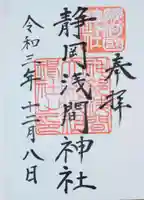 奉拝
静岡浅間神社
令和三年十二月八日